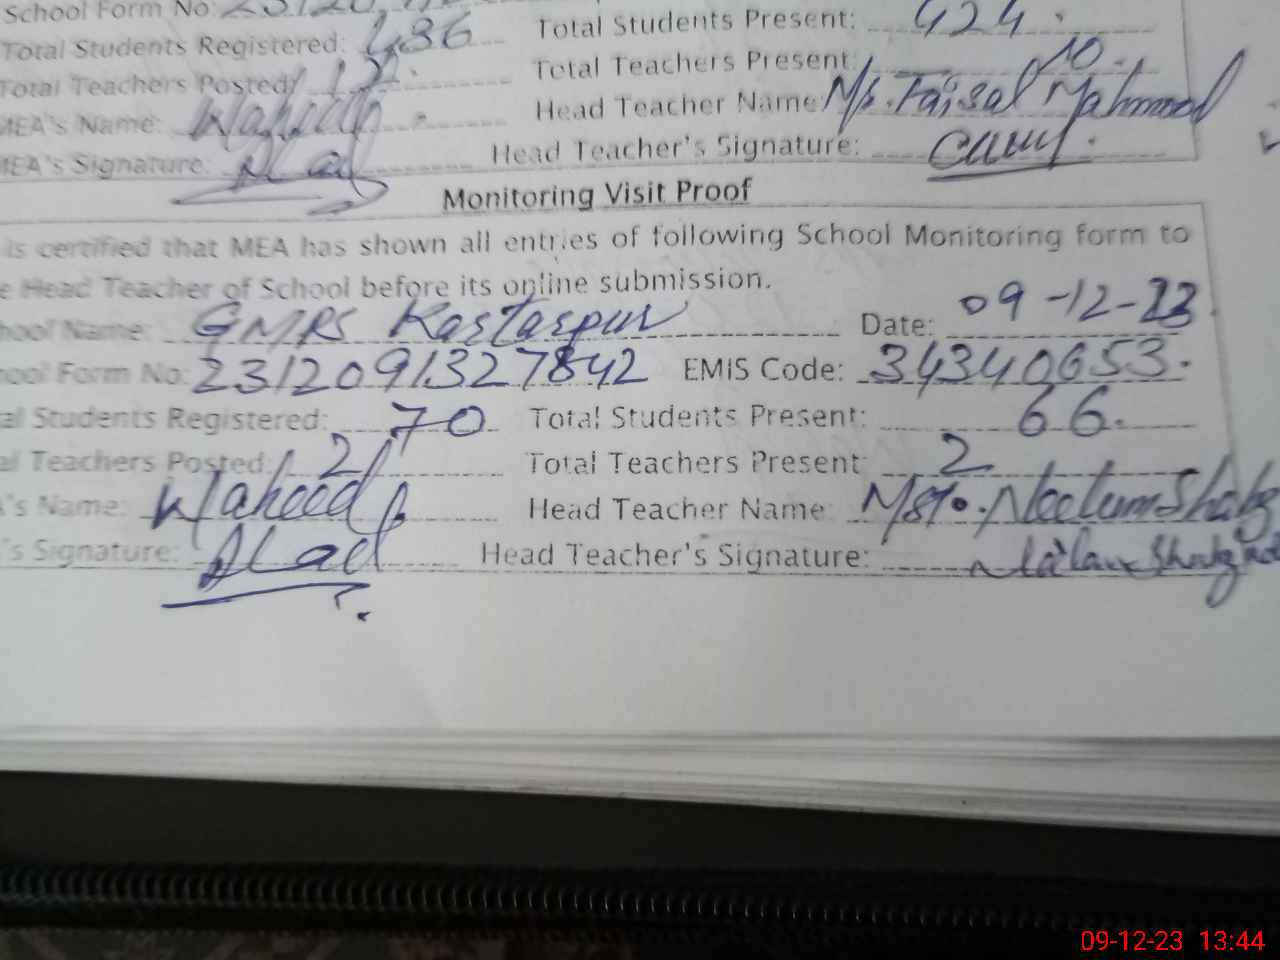 School Form No: 23120
Total Students Registered: 436 Total Students Present: 424.
Total Teachers Posted: 12. Total Teachers Present: 10.
MEA's Name: Waheed Head Teacher Name: Mr. Faisal Mahmood
MEA's Signature: Head Teacher's Signature:
Monitoring Visit Proof
is certified that MEA has shown all entries of following School Monitoring form to
e Head Teacher of School before its online submission.
hool Name: GMPS Kastaspur Date: 09-12-23
ool Form No: 2312091327842 EMIS Code: 34340653.
al Students Registered: 70 Total Students Present: 66.
al Teachers Posted: 2 Total Teachers Present: 2
's Name: Waheed Head Teacher Name: Mst. Neelum
's Signature: Head Teacher's Signature:
09-12-23 13:44